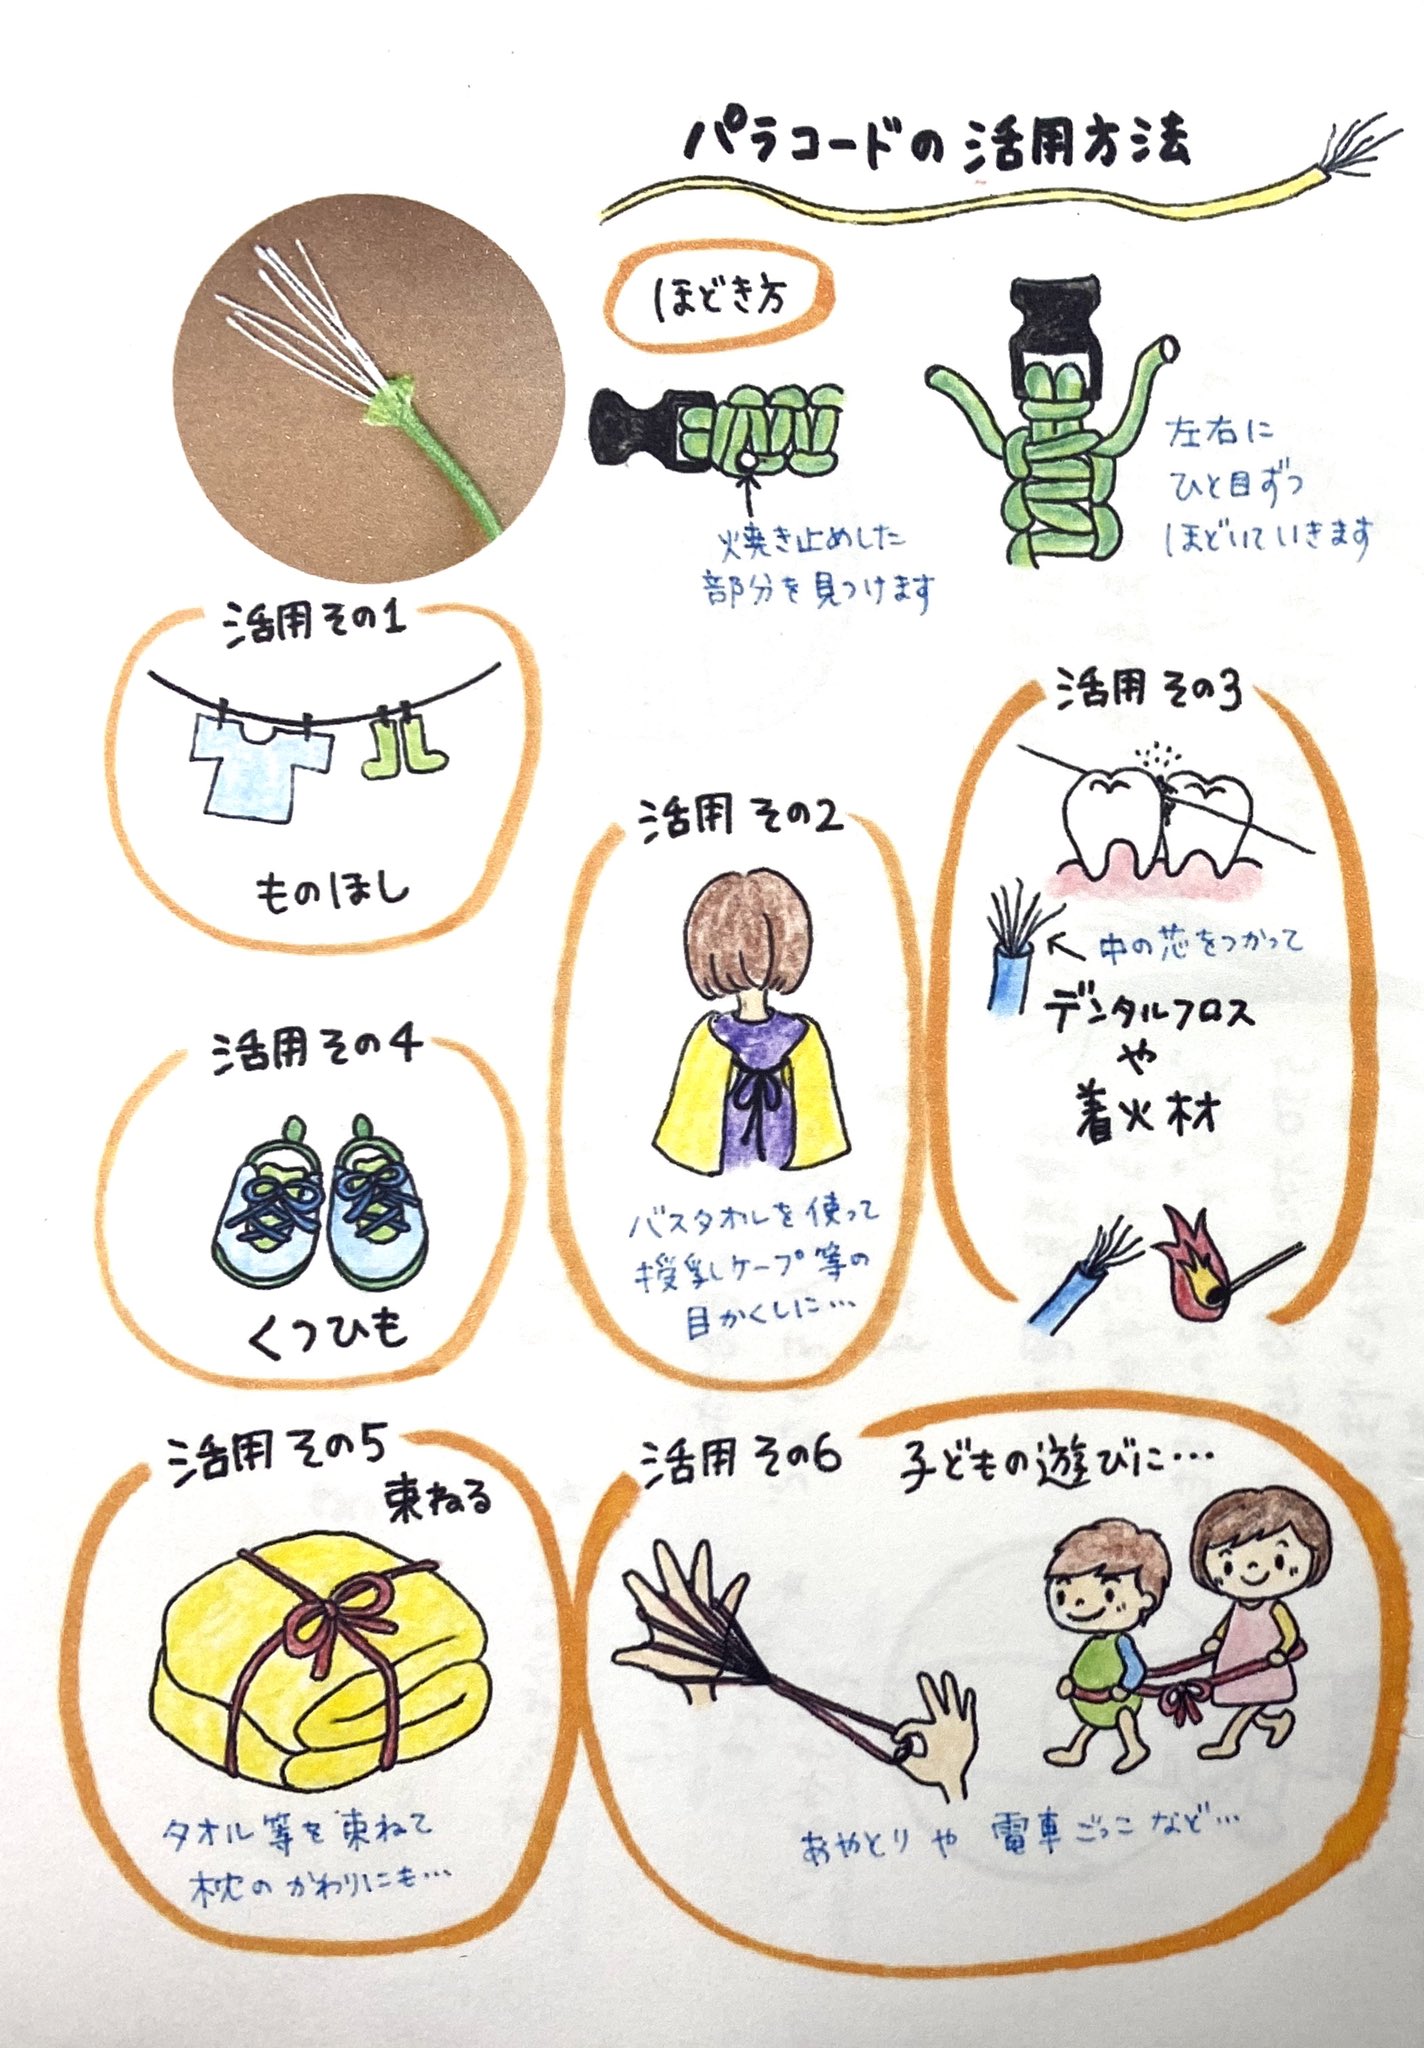 パラコードの活用方法
ほどき方
焼き止めした
部分を見つけます
左右に
ひと目ずつ
ほどいていきます
活用その1
ものほし
活用その2
バスタオルを使って
授乳ケープ等の
目かくしに…
活用その3
中の芯をつかって
デンタルフロス
や
着火材
活用その4
くつひも
活用その5
束ねる
タオル等を束ねて
枕のかわりにも…
活用その6 子どもの遊びに…
あやとりや 電車ごっこなど…